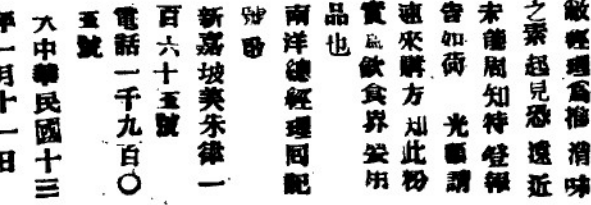 敝經理爲推消味
之素起見恐遠近
未能周知特登報
告如荷　光顧請
速來購方知此粉
實爲飲食界妥用
品也
南洋總經理同記
號啓
新嘉坡美朱律一
百六十五號
電話一千九百〇
五號
大中華民國十三
年一月十一日